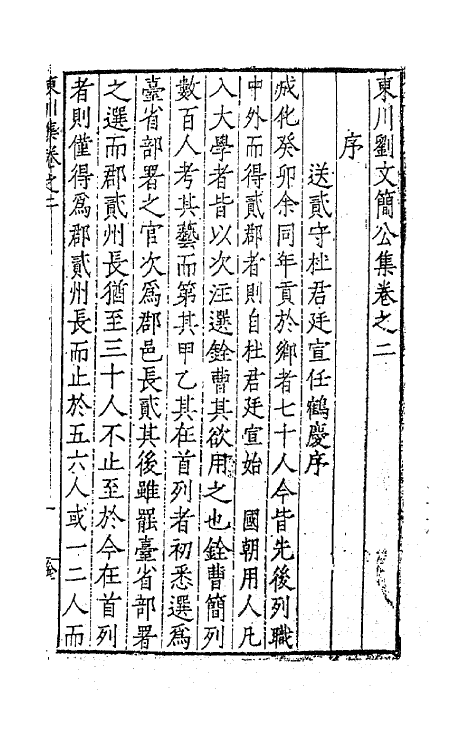 東川劉文簡公集卷之二
序
送貳守杜君廷宣任鶴慶序
成化癸卯余同年貢於鄉者七十人今皆先後列職
中外而得貳郡者則自杜君廷宣始　國朝用人凡
入大學者皆以次注選銓曹其欲用之也銓曹簡列
數百人考其藝而第其甲乙其在首列者初悉選為
臺省部署之官次為郡邑長貳其後雖罷臺省部署
之選而郡貳州長猶至三十人不止至於今在首列
者則僅得為郡貳州長而止於五六人或一二人而
東川集卷之二
一